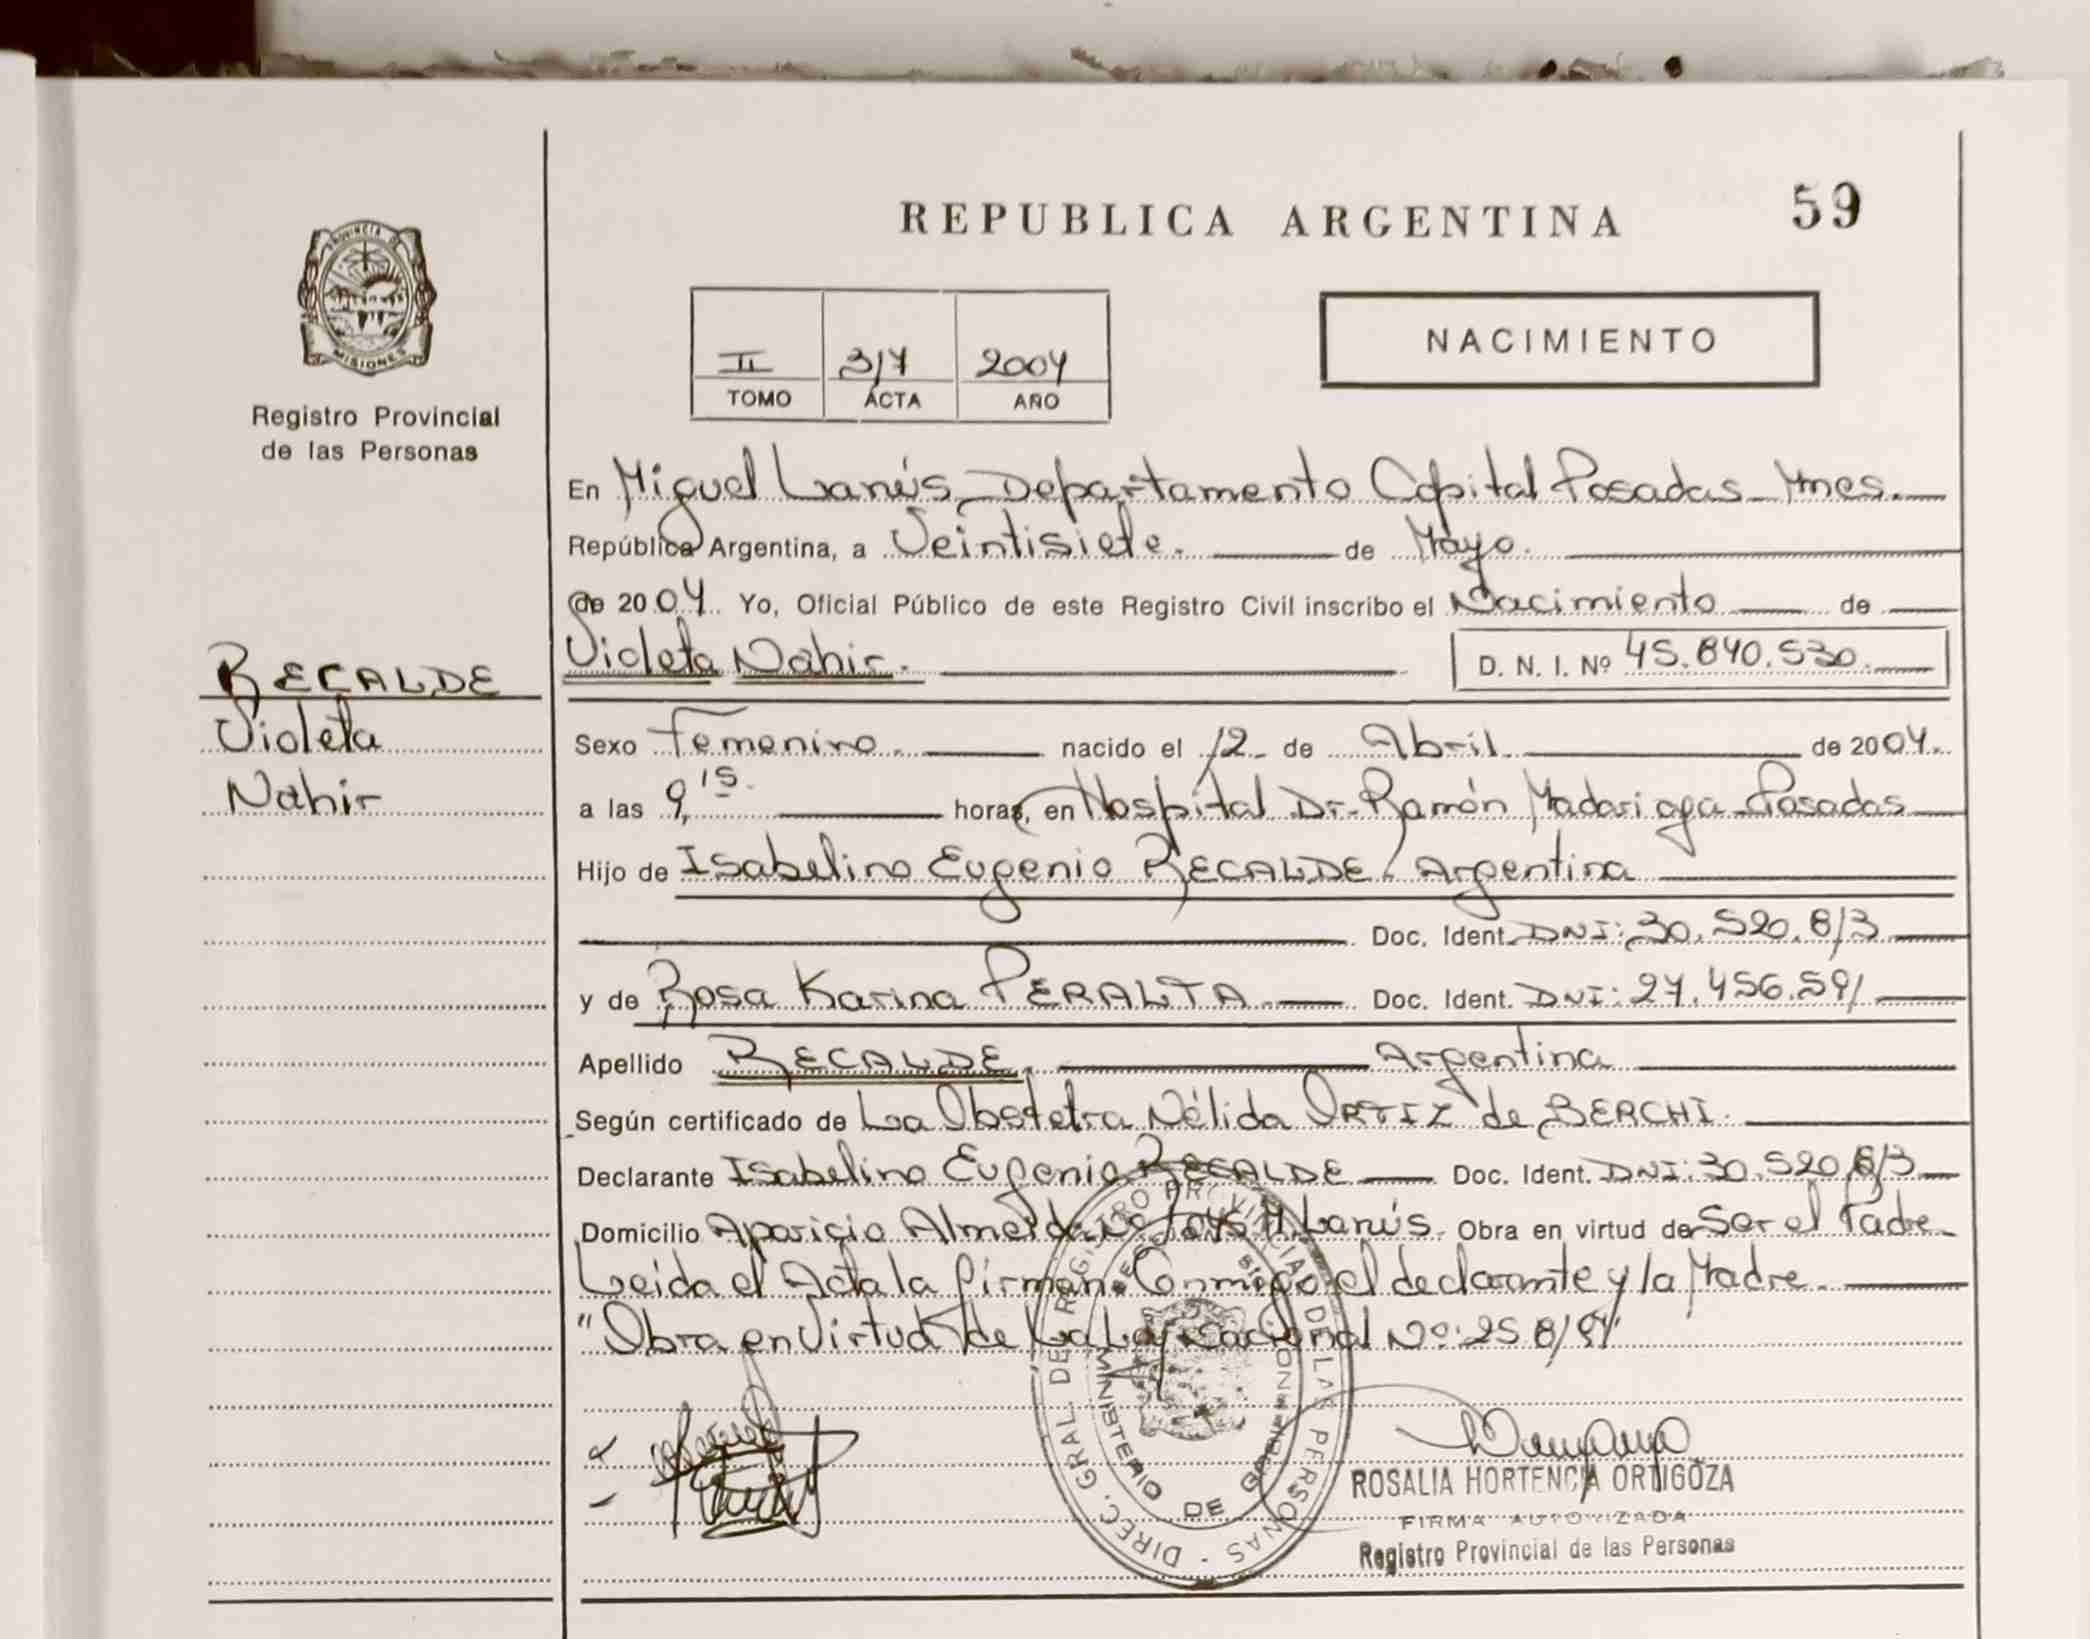 REPUBLICA ARGENTINA
59
PROVINCIA DE
MISIONES
Registro Provincial
de las Personas
II 317 2004
TOMO ACTA AÑO
NACIMIENTO
En Miguel Lanús - Departamento Capital Posadas - Mnes.
República Argentina, a Veintisiete. de Mayo.
de 2004 Yo, Oficial Público de este Registro Civil inscribo el Nacimiento de
Violeta Nahir.
D. N. I. Nº 45.840.530.
RECALDE
Violeta
Nahir
Sexo Femenino. nacido el 12 de Abril de 2004.
a las 9,15. horas, en Hospital Dr. Ramón Madariaga - Posadas
Hijo de Isabelino Eugenio RECALDE / Argentina
Doc. Ident. DNI: 30.520.813
y de Rosa Karina PERALTA. Doc. Ident. DNI: 27.456.591
Apellido RECALDE. Argentina
Según certificado de La Obstetra Nélida ORTIZ de BERCHI.
Declarante Isabelino Eugenio RECALDE Doc. Ident. DNI: 30.520.813
Domicilio Aparicio Almeida M. Lanús. Obra en virtud de Ser el Padre
Leida el Acta la firman Conmigo el declarante y la Madre.
"Obra en Virtud de La Ley Nacional Nº: 25.819"
DIREC. GRAL. DEL REGISTRO PROVINCIAL DE LAS PERSONAS -
MINISTERIO DE GOBIERNO
ROSALIA HORTENCIA ORTIGOZA
FIRMA AUTORIZADA
Registro Provincial de las Personas